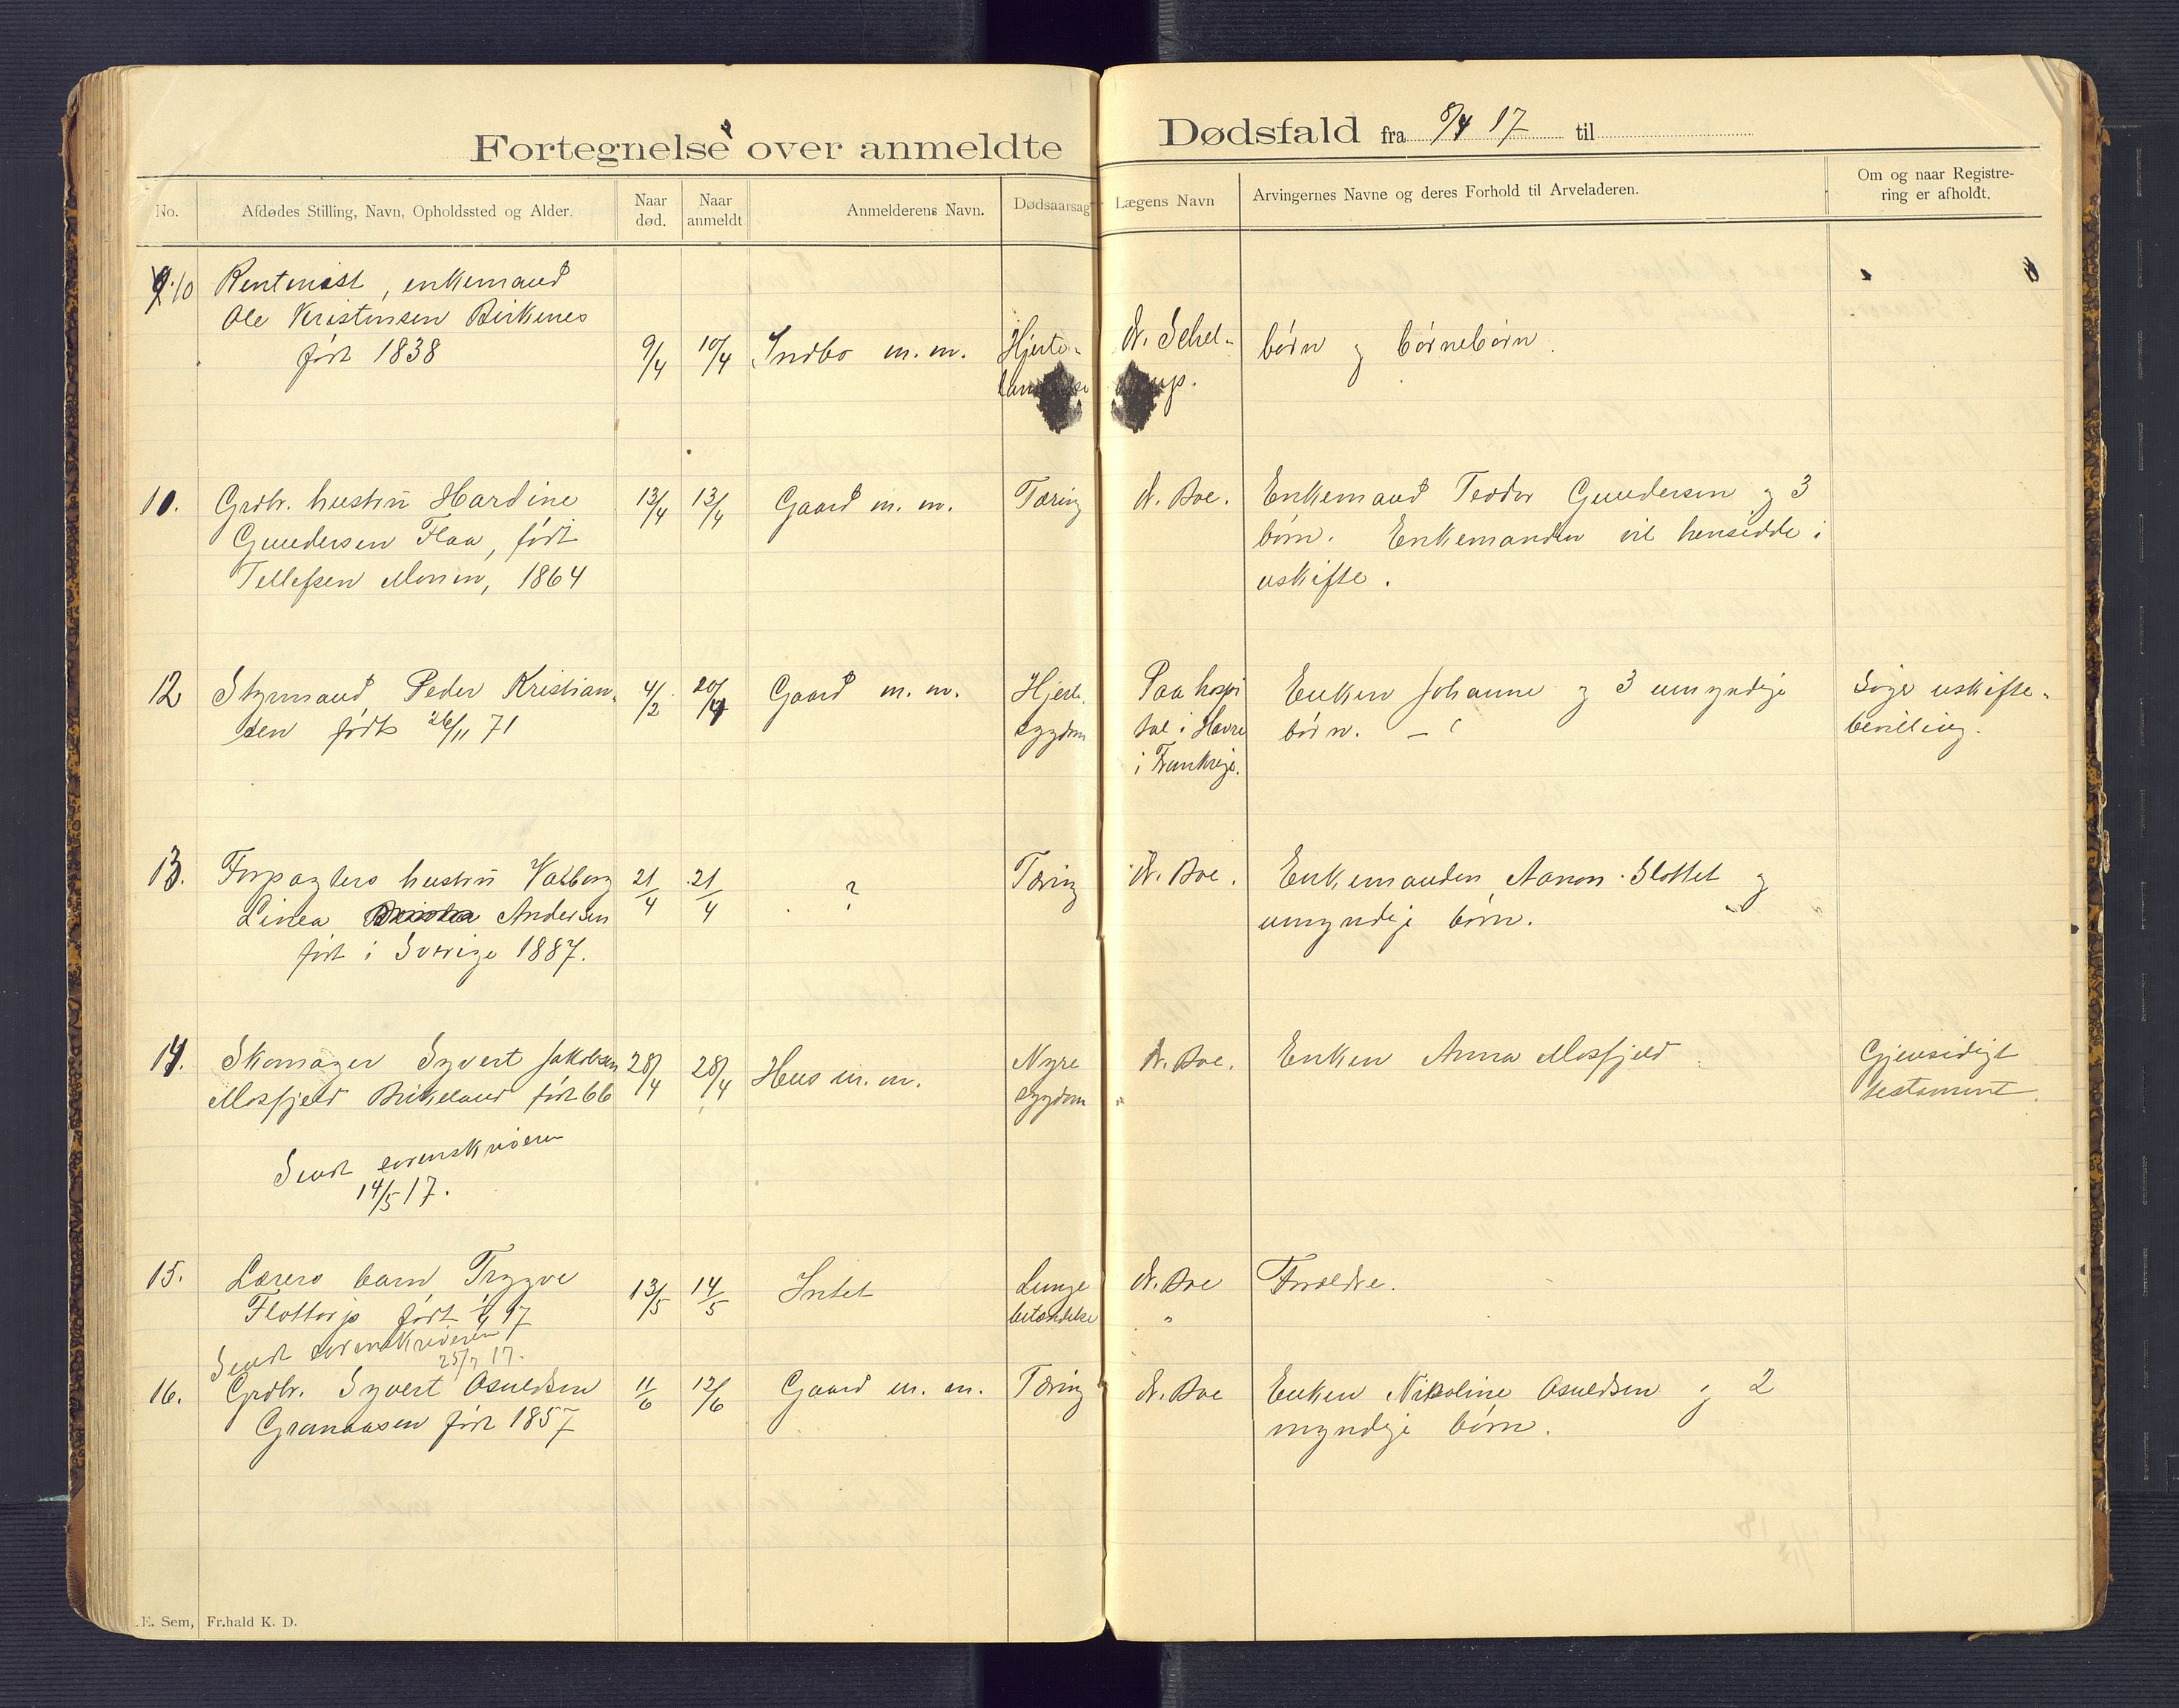 Fortegnelse over anmeldte Dødsfald fra 8/4 17 til
No.
Afdødes Stilling, Navn, Opholdssted og Alder.
Naar død.
Naar anmeldt
Anmelderens Navn.
Dødsaarsag
Lægens Navn
Arvingernes Navne og deres Forhold til Arveladeren.
Om og naar Registre-
ring er afholdt.
10 Rentenist, enkemand
Ole Kristensen Birkenes
født 1838 9/4 10/4 Indbo m.m. Hjerte-
dr. Schel-
børn og børnebørn.
10. Grdbr. hustru Hardine 13/4 13/4 Gaard m.m. Tæring dr. Boe. Enkemand Teodor Gundersen og 3
Gundersen Flaa, født børn. Enkemanden vil hensidde i
Tellefsen Monen, 1864 uskifte.
12 Styrmand Peder Kristian- 4/2 20/4 Gaard m.m. Hjerte Paa hospi Enken Johanne og 3 umyndige Søger uskifte-
sen født 26/11 71 sygdom tal i Havre børn. bevilling.
i Frankrige.
13. Forpagters hustru Valborg 21/4 21/4 ? Tæring dr. Boe. Enkemanden Aanon Slottet og
Linea Andersen umyndige børn.
født i Sverige 1887.
14. Skomager Syvert Jakobsen 28/4 28/4 Hus m.m. Nyre dr. Boe. Enken Anna Mosfjeld Gjensidigt
Mosfjeld Birkeland født 66 sygdom testament.
Sendt sorenskriveren
14/5 17.
15. Lærers barn Trygve 13/5 14/5 Intet Lunge dr. Boe Forældre.
Flottorp født 17 betændelse "
Sendt sorenskriveren
25/7 17.
16. Grdbr. Syvert Osuldsen 11/6 12/6 Gaard m.m. Tæring dr. Boe Enken Nikoline Osuldsen og 2
Granaasen født 1857 myndige børn.
E. Sem, Fr.hald K. D.